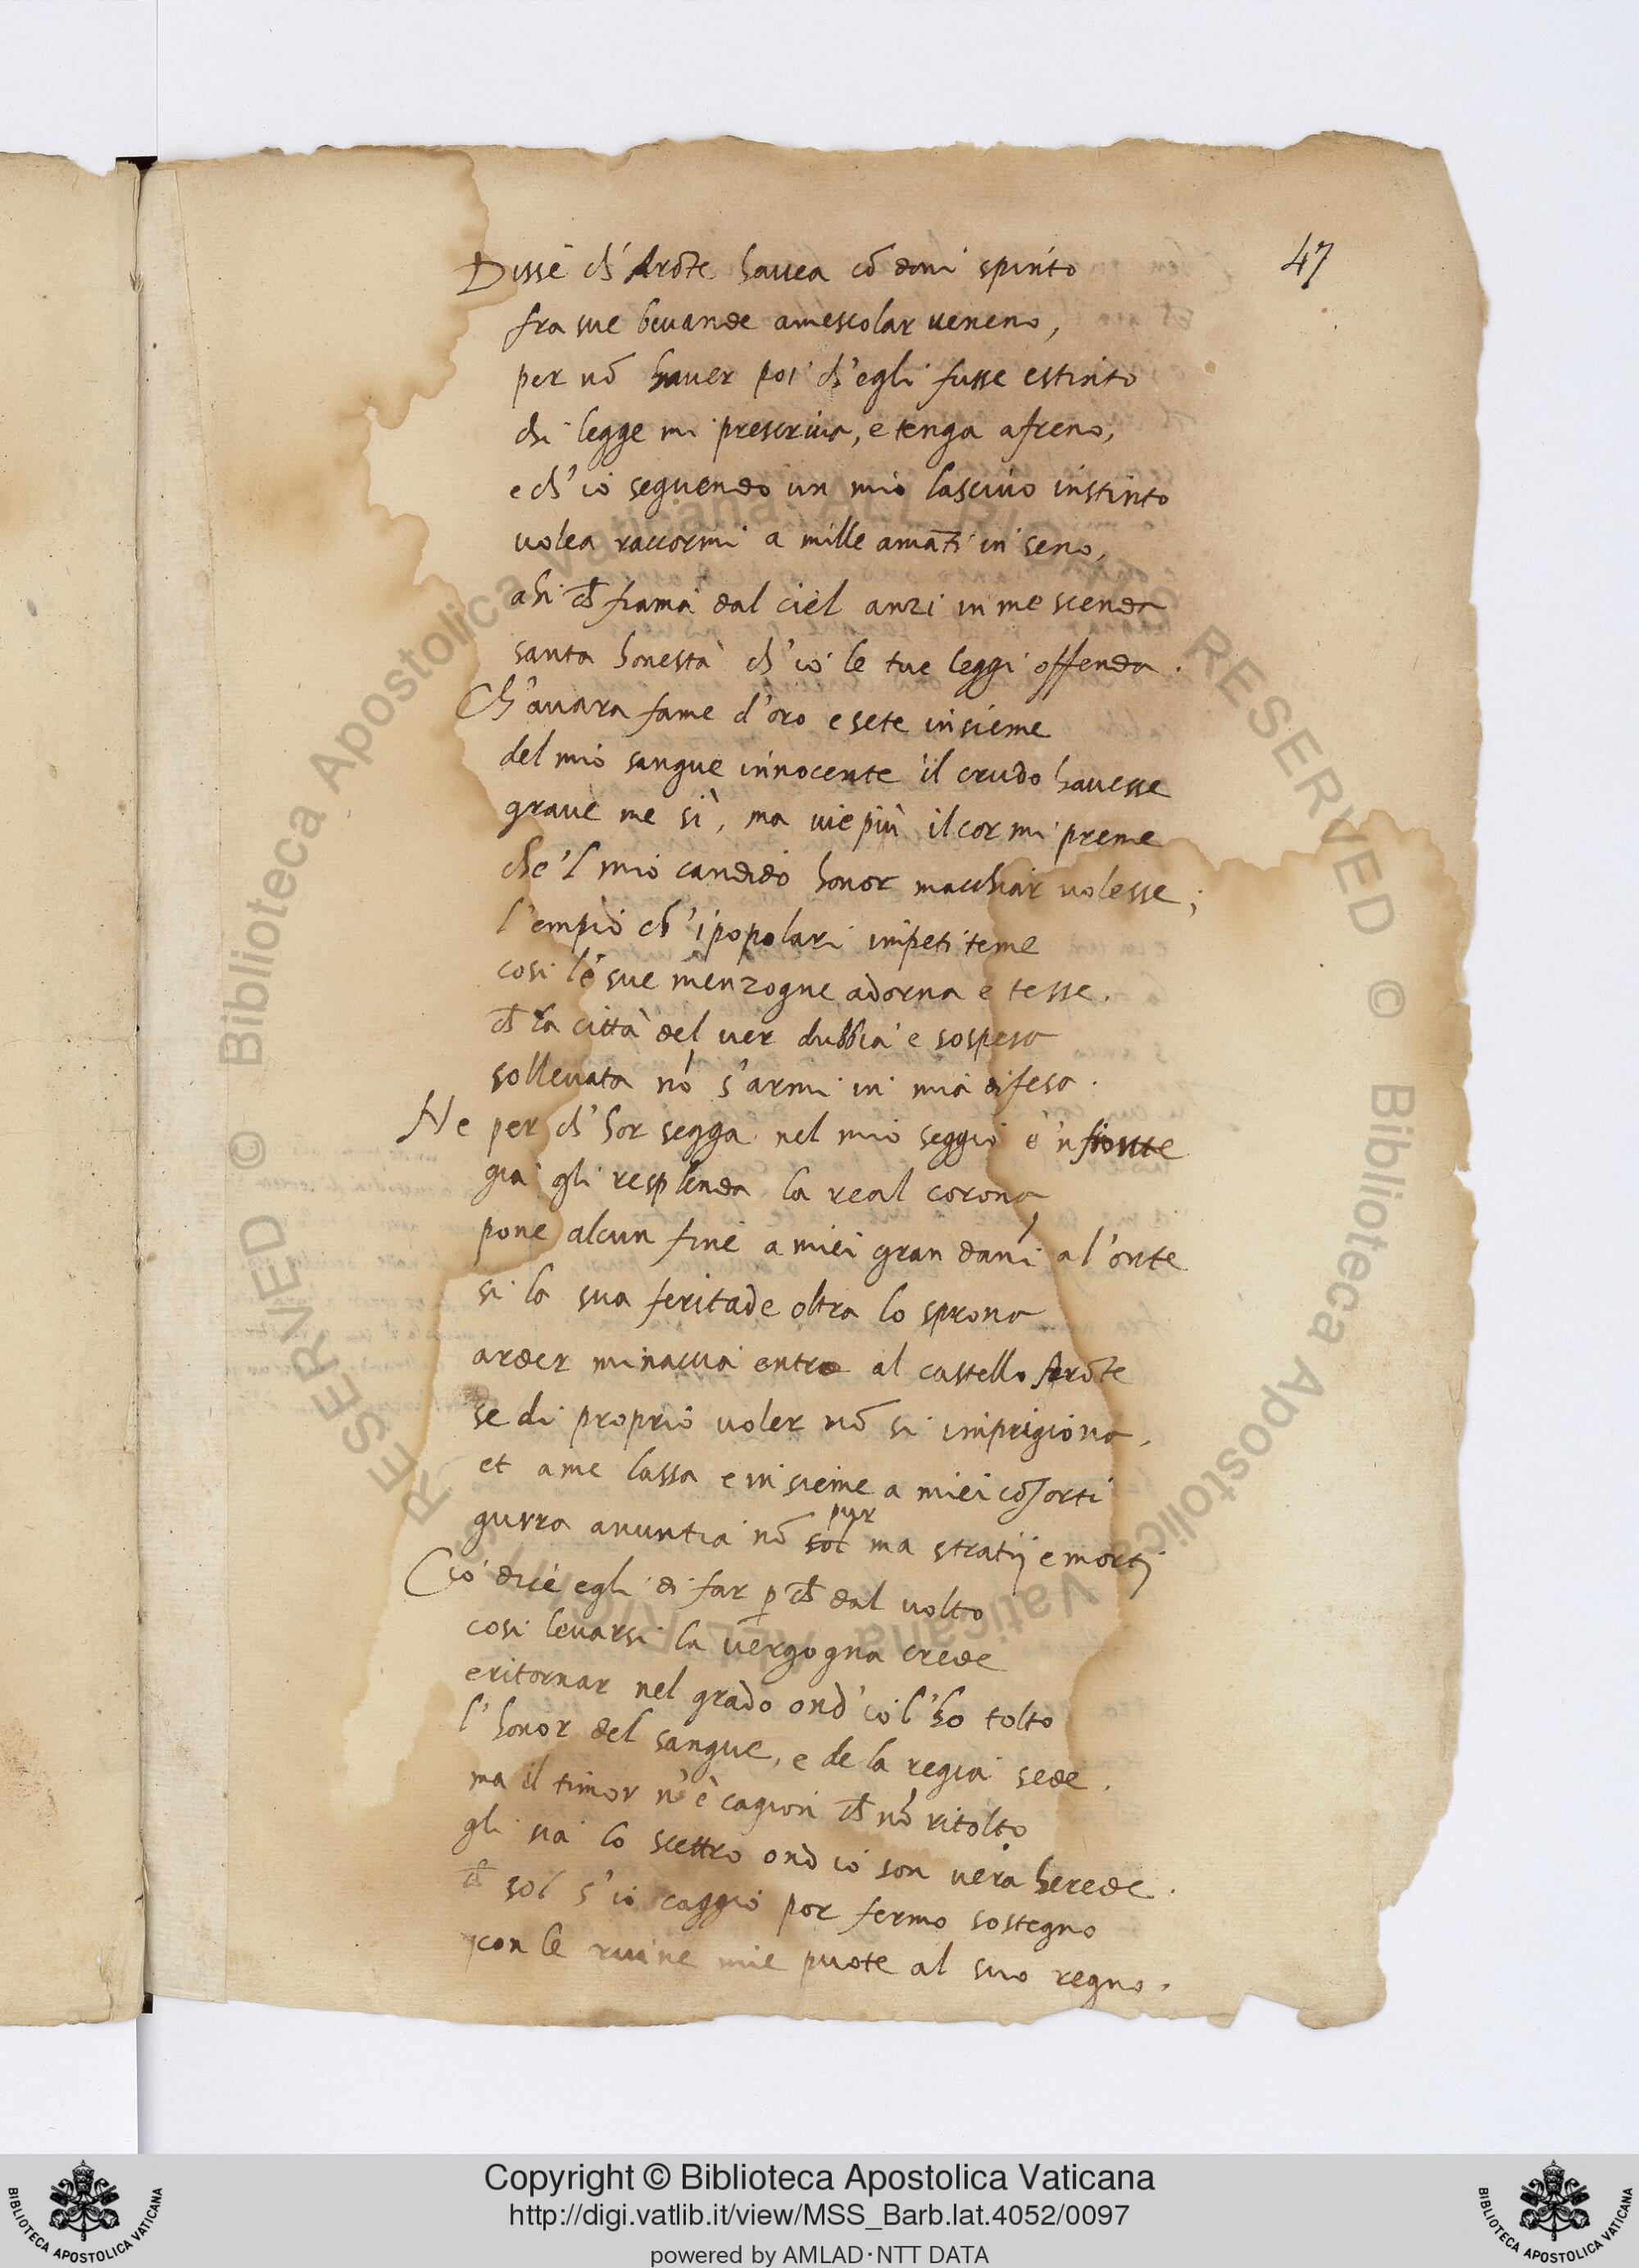 47
Disse ch'Arōte hauea cō doni spinto
fra sue beuande amescolar ueneno,
per nō hauer poi ch'egli fusse estinto
chi legge mi prescriua, e tenga afreno,
e ch'io seguendo un mio lasciuo instinto
uolea raccormi a mille amāti in seno,
ahi ch̄ fiama dal ciel anzi in me scenda
santa honestà ch'io le tue leggi offenda.
Ch'auara fame d'oro e sete insieme
del mio sangue innocente il crudo hauesse
graue me sì, ma uie più il cor mi preme
che'l mio candido honor macchiar uolesse;
l'empio ch'i popolari impeti teme
cosi le sue menzogne adorna e tesse.
ch̄ la città del uer dubbia e sospesa
solleuata nō s'armi in mia difesa.
Ne per ch'hor segga nel mio seggio e'n fronte
già gli resplenda la real corona
pone alcun fine a miei gran dāni a l'onte
si la sua feritade oltra lo sprona
arder minaccia entro al castello Arōte
se di proprio uoler nō si imprigiona,
et a me lassa e insieme a miei cōsorti
guerra anuntia nō sol pur ma stratij e morti
Ciò dice egli di far p ch̄ dal uolto
cosi leuarsi la vergogna crede
e ritornar nel grado ond'io l'ho tolto
l'honor del sangue, e de la regia sede.
ma il timor n'è cagion ch̄ nō ritolto
gli sia lo scettro ond io son uera herede.
ch̄ sol s'io caggio por fermo sostegno
con le ruine mie puote al suo regno.
Biblioteca Apostolica Vaticana ALL RIGHTS RESERVED ©
Biblioteca Apostolica Vaticana ALL RIGHTS RESERVED ©
BIBLIOTECA APOSTOLICA VATICANA
Copyright © Biblioteca Apostolica Vaticana
http://digi.vatlib.it/view/MSS_Barb.lat.4052/0097
powered by AMLAD·NTT DATA
BIBLIOTECA APOSTOLICA VATICANA